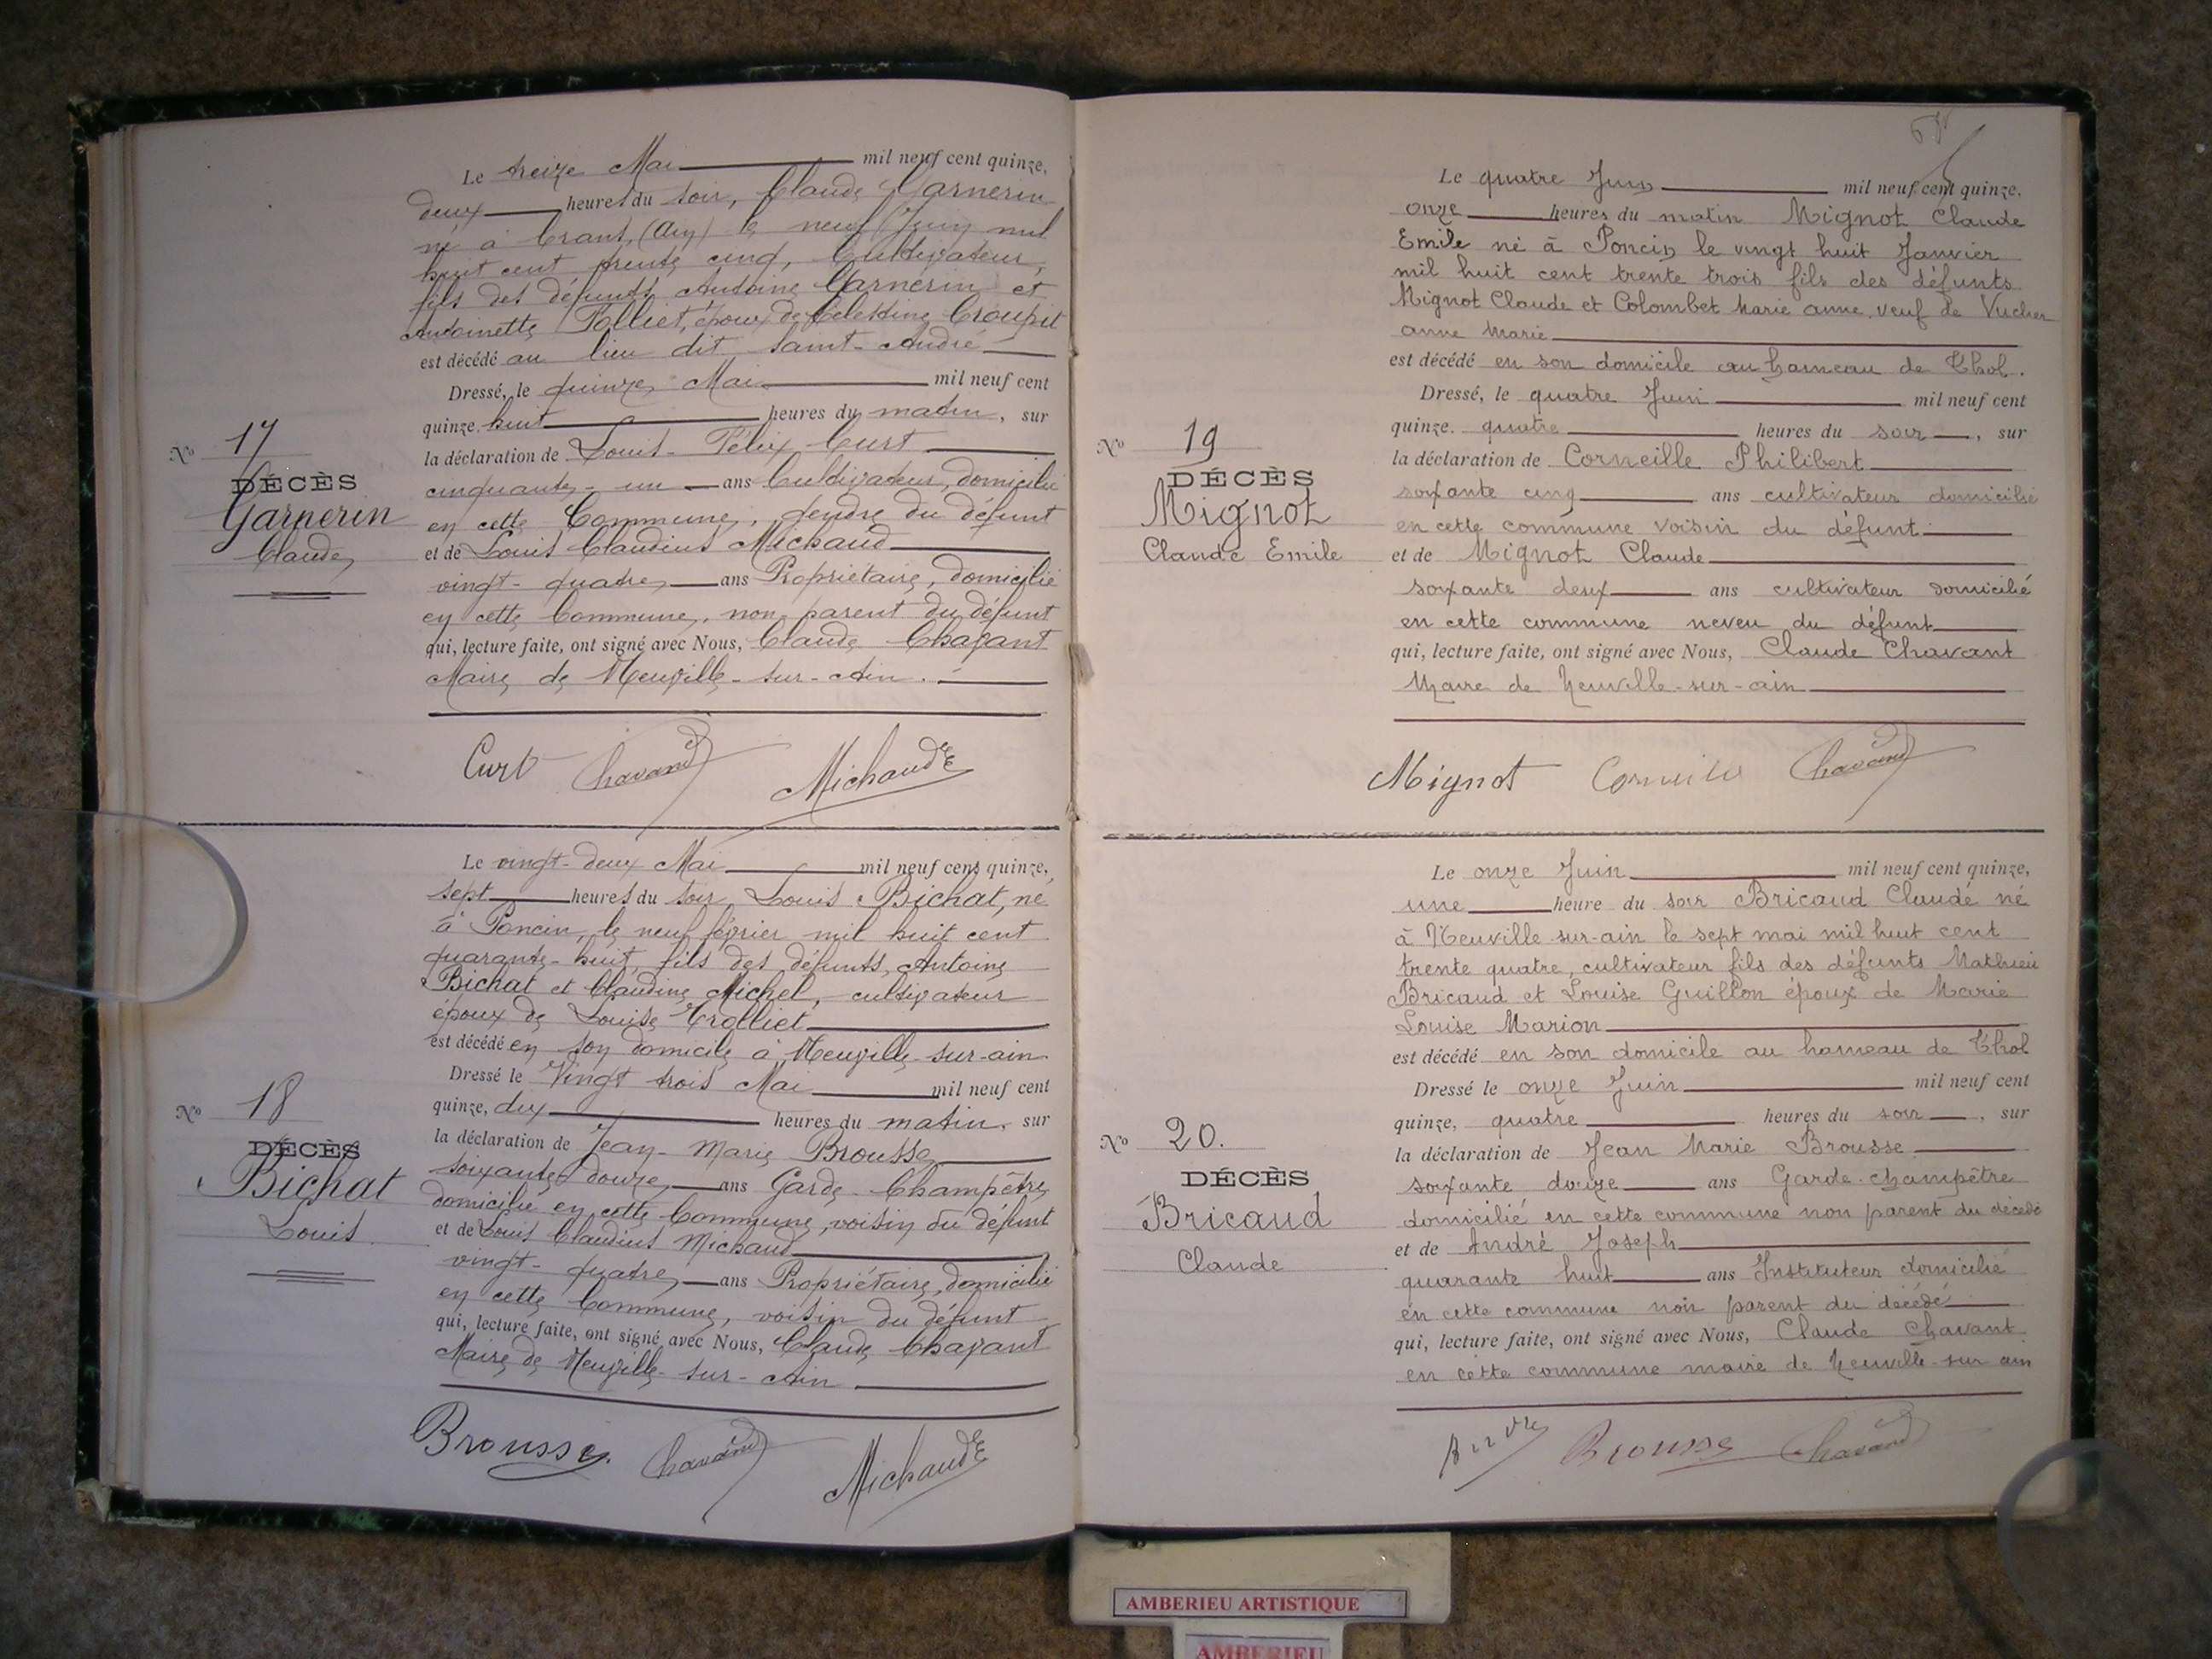 Le treize Mai mil neuf cent quinze,
deux heures du soir, Claude Garnerin
né à Crans, (Ain) le neuf Juin mil
huit cent trente cinq, Cultivateur,
fils des défunts Antoine Garnerin et
Antoinette Polliet, époux de Célestine
est décédé au lieu dit Saint-André
Dressé, le quinze Mai mil neuf cent
quinze. huit heures du matin, sur
la déclaration de Louis-Félix Curt
cinquante-un ans Cultivateur, domicilié
en cette Commune, gendre du défunt
et de Louis Claudius Michaud
vingt-quatre ans Propriétaire, domicilié
en cette Commune, non parent du défunt
qui, lecture faite, ont signé avec Nous, Claude Chavant
Maire de Neuville-sur-Ain.
No 17
DÉCÈS
Garnerin
Claude
Curt Chavant Michaud
Le vingt-deux Mai mil neuf cent quinze,
sept heures du soir Louis Bichat, né
à Poncin, le neuf février mil huit cent
quarante-huit, fils des défunts, Antoine
Bichat et Claudine Michel, cultivateur
époux de Louise Trolliet
est décédé en son domicile à Neuville-sur-ain
Dressé le Vingt trois Mai mil neuf cent
quinze, dix heures du matin, sur
la déclaration de Jean-Marie Brousse
soixante douze ans Garde-Champêtre
domicilié en cette Commune, voisin du défunt
et de Louis Claudius Michaud
vingt-quatre ans Propriétaire, domicilié
en cette Commune, voisin du défunt
qui, lecture faite, ont signé avec Nous, Claude Chavant
Maire de Neuville-sur-Ain
No 18
DÉCÈS
Bichat
Louis
Brousse Chavant Michaud
Le quatre Juin mil neuf cent quinze.
onze heures du matin Mignot Claude
Emile né à Poncin le vingt huit Janvier
mil huit cent trente trois fils des défunts
Mignot Claude et Colombet Marie anne veuf de Vucher
anne Marie
est décédé en son domicile au hameau de Thol.
Dressé, le quatre Juin mil neuf cent
quinze. quatre heures du soir, sur
la déclaration de Corneille Philibert
soixante cinq ans cultivateur domicilié
en cette commune voisin du défunt
et de Mignot Claude
soixante deux ans cultivateur domicilié
en cette commune neveu du défunt
qui, lecture faite, ont signé avec Nous, Claude Chavant
Maire de Neuville-sur-ain
No 19
DÉCÈS
Mignot
Claude Emile
Mignot Corneille Chavant
Le onze Juin mil neuf cent quinze,
une heure du soir Bricaud Claude né
à Neuville-sur-ain le sept mai mil huit cent
trente quatre, cultivateur fils des défunts Mathieu
Bricaud et Louise Guillon époux de Marie
Louise Marion
est décédé en son domicile au hameau de Thol
Dressé le onze Juin mil neuf cent
quinze, quatre heures du soir, sur
la déclaration de Jean Marie Brousse
soixante douze ans Garde-champêtre
domicilié en cette commune non parent du décédé
et de André Joseph
quarante huit ans Instituteur domicilié
en cette commune non parent du décédé
qui, lecture faite, ont signé avec Nous, Claude Chavant
en cette commune maire de Neuville-sur ain
No 20.
DÉCÈS
Bricaud
Claude
André Brousse Chavant
AMBERIEU ARTISTIQUE
AMBERIEU